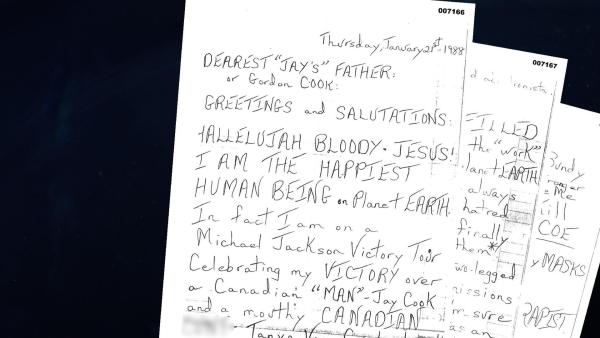 007166
Thursday, January 21st-1988
DEAREST "JAY'S" FATHER:
or Gordon COOK:
GREETINGS and SALUTATIONS:
HALLELUJAH BLOODY-JESUS!
I AM THE HAPPIEST
HUMAN BEING on Planet EARTH.
In fact I am on a
Michael Jackson Victory Tour
Celebrating my VICTORY over
a Canadian "MAN"-Jay Cook
and a mouthy CANADIAN
Tanya
007167
FILLED
the "work"
planet EARTH
always
hatred
finally
them*
two-legged
missions
I'm sure
as an
Bundy
Me
COE
MASKS
RAPIST